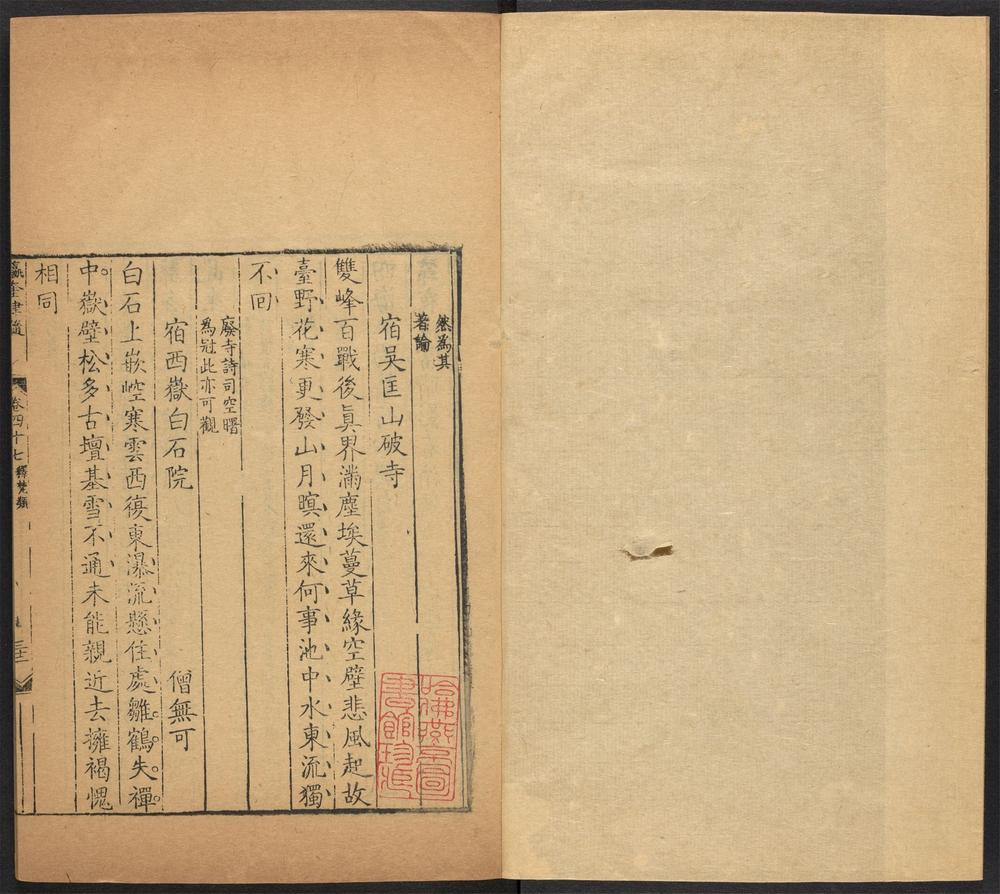 然爲其
著論
宿吳匡山破寺
雙峰百戰後眞界滿塵埃蔓草緣空壁悲風起故
臺野花寒更發山月暝還來何事池中水東流獨
不回
廢寺詩司空曙
爲冠此亦可觀
宿西嶽白石院
僧無可
白石上嵌崆寒雲西復東瀑流懸住處雛鶴失禪
中嶽壁松多古壇基雪不通未能親近去擁褐愧
相同
瀛奎律髓
卷四十七
釋梵類
哈佛燕京圖
書館珍藏